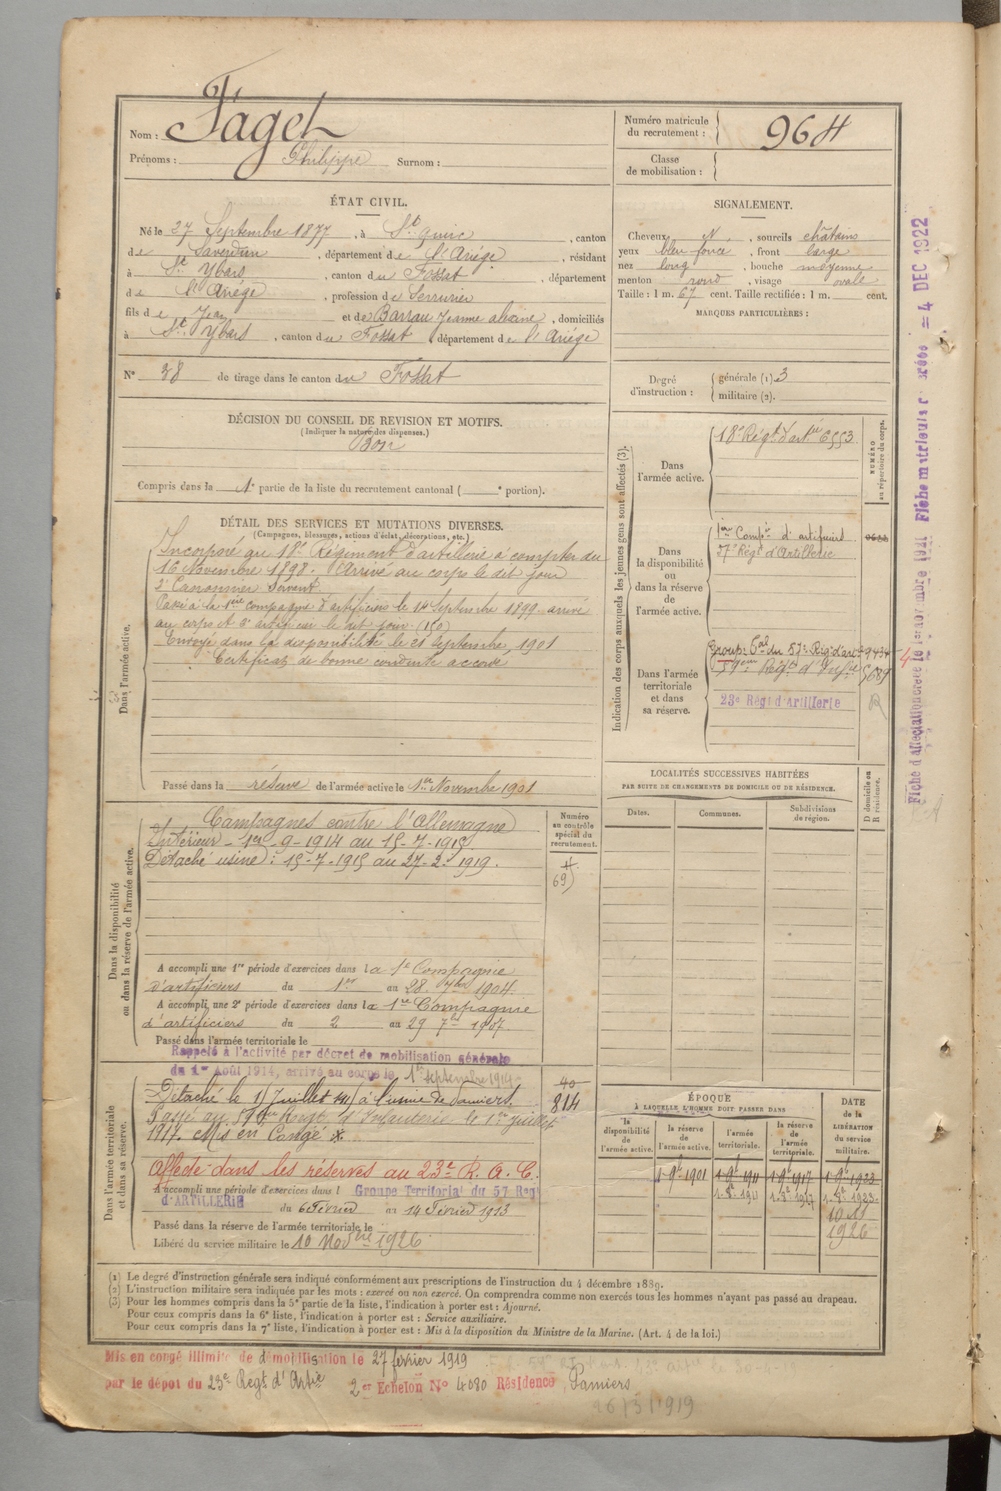 Nom : Faget
Prénoms : Philippe Surnom :
Numéro matricule du recrutement : 964
Classe de mobilisation :
ÉTAT CIVIL.
Né le 27 Septembre 1877, à St Quirc, canton
de Saverdun, département de l'Ariège, résidant
à St Ybars, canton du Fossat, département
de l'Ariège, profession de Serrurier
fils de Jean et de Barrau Jeanne, domiciliés
à St Ybars, canton du Fossat, département de l'Ariège
N° 38 de tirage dans le canton du Fossat
SIGNALEMENT.
Cheveux N, sourcils châtains
yeux bleu foncé, front large
nez long, bouche moyenne
menton rond, visage ovale
Taille : 1 m. 67 cent. Taille rectifiée : 1 m. cent.
MARQUES PARTICULIÈRES :
Degré d'instruction : générale (1) 3
militaire (2).
DÉCISION DU CONSEIL DE REVISION ET MOTIFS.
(Indiquer la nature des dispenses.)
Bon
Compris dans la 1e partie de la liste du recrutement cantonal ( e portion).
DÉTAIL DES SERVICES ET MUTATIONS DIVERSES.
(Campagnes, blessures, actions d'éclat, décorations, etc.)
Dans l'armée active.
Incorporé au 18e Régiment d'artillerie à compter du
16 Novembre 1898. Arrivé au corps le dit jour
2e Canonnier Servant
Passé à la 1ère compagnie d'artificiers le 14 Septembre 1899 arrivé
au corps et 2e artificier le dit jour
Envoyé dans la disponibilité le 21 Septembre 1901
Certificat de bonne conduite accordé
Passé dans la réserve de l'armée active le 1er Novembre 1901
Indication des corps auxquels les jeunes gens sont affectés (3).
NUMÉRO au répertoire du corps.
Dans l'armée active.
18e Régt d'artie 6553
Dans la disponibilité ou dans la réserve de l'armée active.
1ère Compie d'artificiers
37e Régt d'Artillerie
Dans l'armée territoriale et dans sa réserve.
Groupe tal du 57e Rég. d'art 9434
59ème Régt d'Infie 5689
23e Régt d'Artillerie
LOCALITÉS SUCCESSIVES HABITÉES
PAR SUITE DE CHANGEMENTS DE DOMICILE OU DE RÉSIDENCE.
Dates. Communes. Subdivisions de région. D domicile ou R résidence.
Dans la disponibilité ou dans la réserve de l'armée active.
Campagnes contre l'Allemagne
Intérieur - 1er-9-1914 au 15-7-1915
Détaché usine : 15-7-1915 au 27-2-1919.
Numéro au contrôle spécial du recrutement.
69
A accompli une 1re période d'exercices dans la 1e Compagnie
d'artificiers du 1er au 28 7bre 1904.
A accompli une 2e période d'exercices dans la 1re Compagnie
d'artificiers du 2 au 29 7bre 1907
Passé dans l'armée territoriale le
Rappelé à l'activité par décret de mobilisation générale
du 1er Août 1914, arrivé au corps le 1er septembre 1914
Dans l'armée territoriale et dans sa réserve.
40
814
Détaché le 15 Juillet à l'usine de Pamiers.
Passé au Régt d'Infanterie le 1er Juillet
1917. Mis en Congé
Affecté dans les réserves au 23e R. A. C.
A accompli une période d'exercices dans l Groupe Territorial du 57 Régt
d'ARTILLERIE du 6 Février au 14 Février 1913
Passé dans la réserve de l'armée territoriale le
Libéré du service militaire le 10 Novbre 1926
ÉPOQUE
À LAQUELLE L'HOMME DOIT PASSER DANS
la disponibilité de l'armée active. la réserve de l'armée active. l'armée territoriale. la réserve de l'armée territoriale. DATE de la LIBÉRATION du service militaire.
1-9bre 1901 1-9bre 1911 1-9bre 1917
10 11
1926
(1) Le degré d'instruction générale sera indiqué conformément aux prescriptions de l'instruction du 4 décembre 1889.
(2) L'instruction militaire sera indiquée par les mots : exercé ou non exercé. On comprendra comme non exercés tous les hommes n'ayant pas passé au drapeau.
(3) Pour les hommes compris dans la 5e partie de la liste, l'indication à porter est : Ajourné.
Pour ceux compris dans la 6e liste, l'indication à porter est : Service auxiliaire.
Pour ceux compris dans la 7e liste, l'indication à porter est : Mis à la disposition du Ministre de la Marine. (Art. 4 de la loi.)
Mis en congé illimité de démobilisation le 27 février 1919
par le dépot du 23e Régt d'Artie 2er Echelon N° 4080 Résidence Pamiers
26/3/1919
= 4 DEC 1922